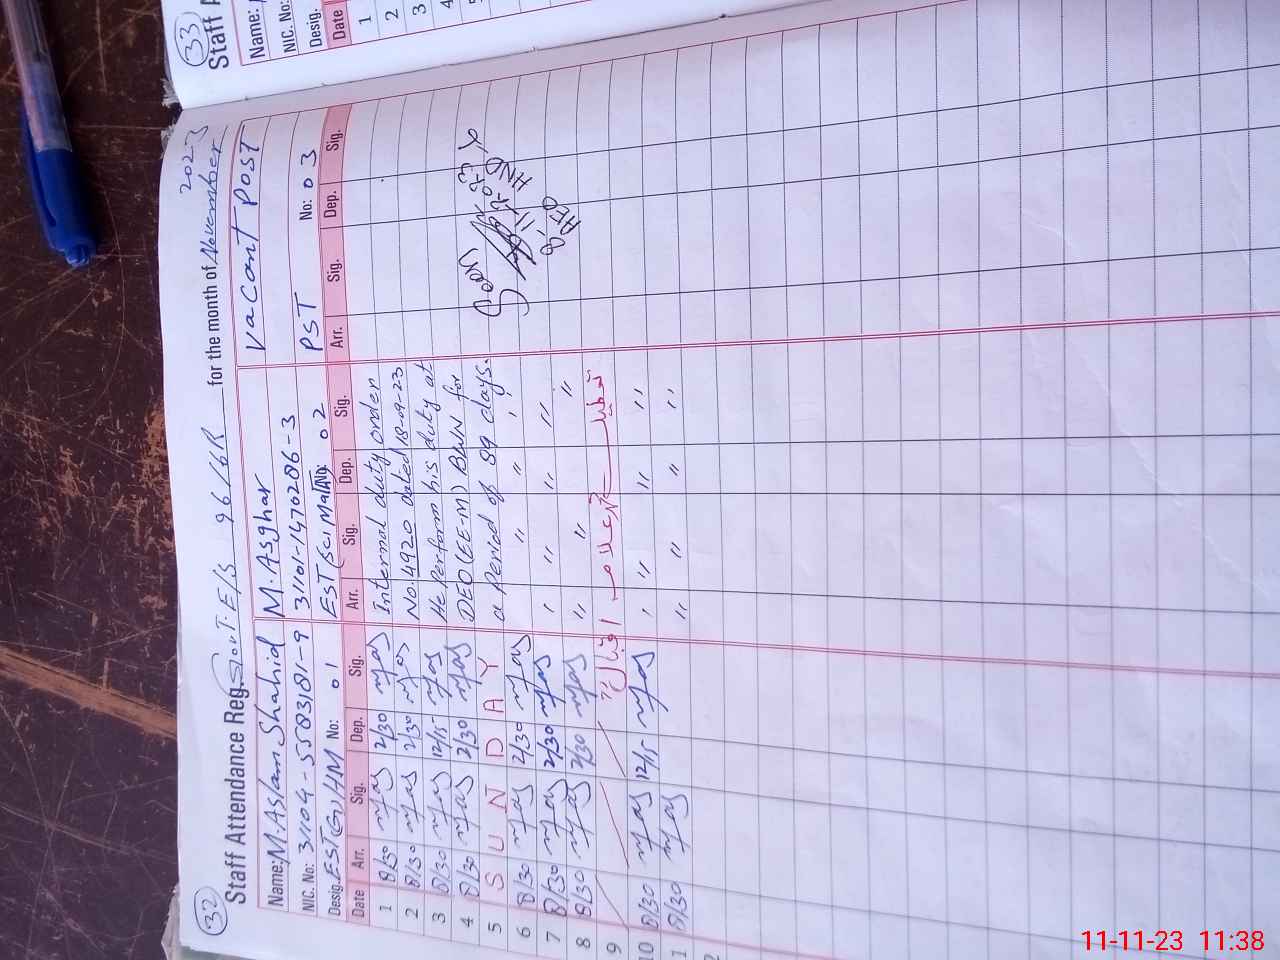 32
Staff Attendance Reg. Govt. E/S 96/6R for the month of November 2023
Name: M. Aslam Shahid M. Asghar Vacant Post
NIC. No: 31104-5583181-9 31101-1470286-3
Desig. EST(G)/HM No: 01 EST(Sci Math) No: 02 PST No: 03
Date Arr. Sig. Dep. Sig. Arr. Sig. Dep. Sig. Arr. Sig. Dep. Sig.
1 8/30 2/30 Internal duty order
2 8/30 2/30 No. 4920 dated 18-09-23
3 8/30 12/15 He Perform his duty at
4 8/30 2/30 DEO (EE-M) BWN for
5 S U N D A Y a Period of 89 days.
6 8/30 2/30 " "
7 8/30 2/30 ' " " "
8 8/30 2/30 " " "
9 اقبال تعطیل
10 8/30 12/15 ' " " "
1 8/30 " " " "
2
AEO HND
33
Staff A
Name:
NIC. No:
Desig.
Date
1
2
3
4
11-11-23 11:38